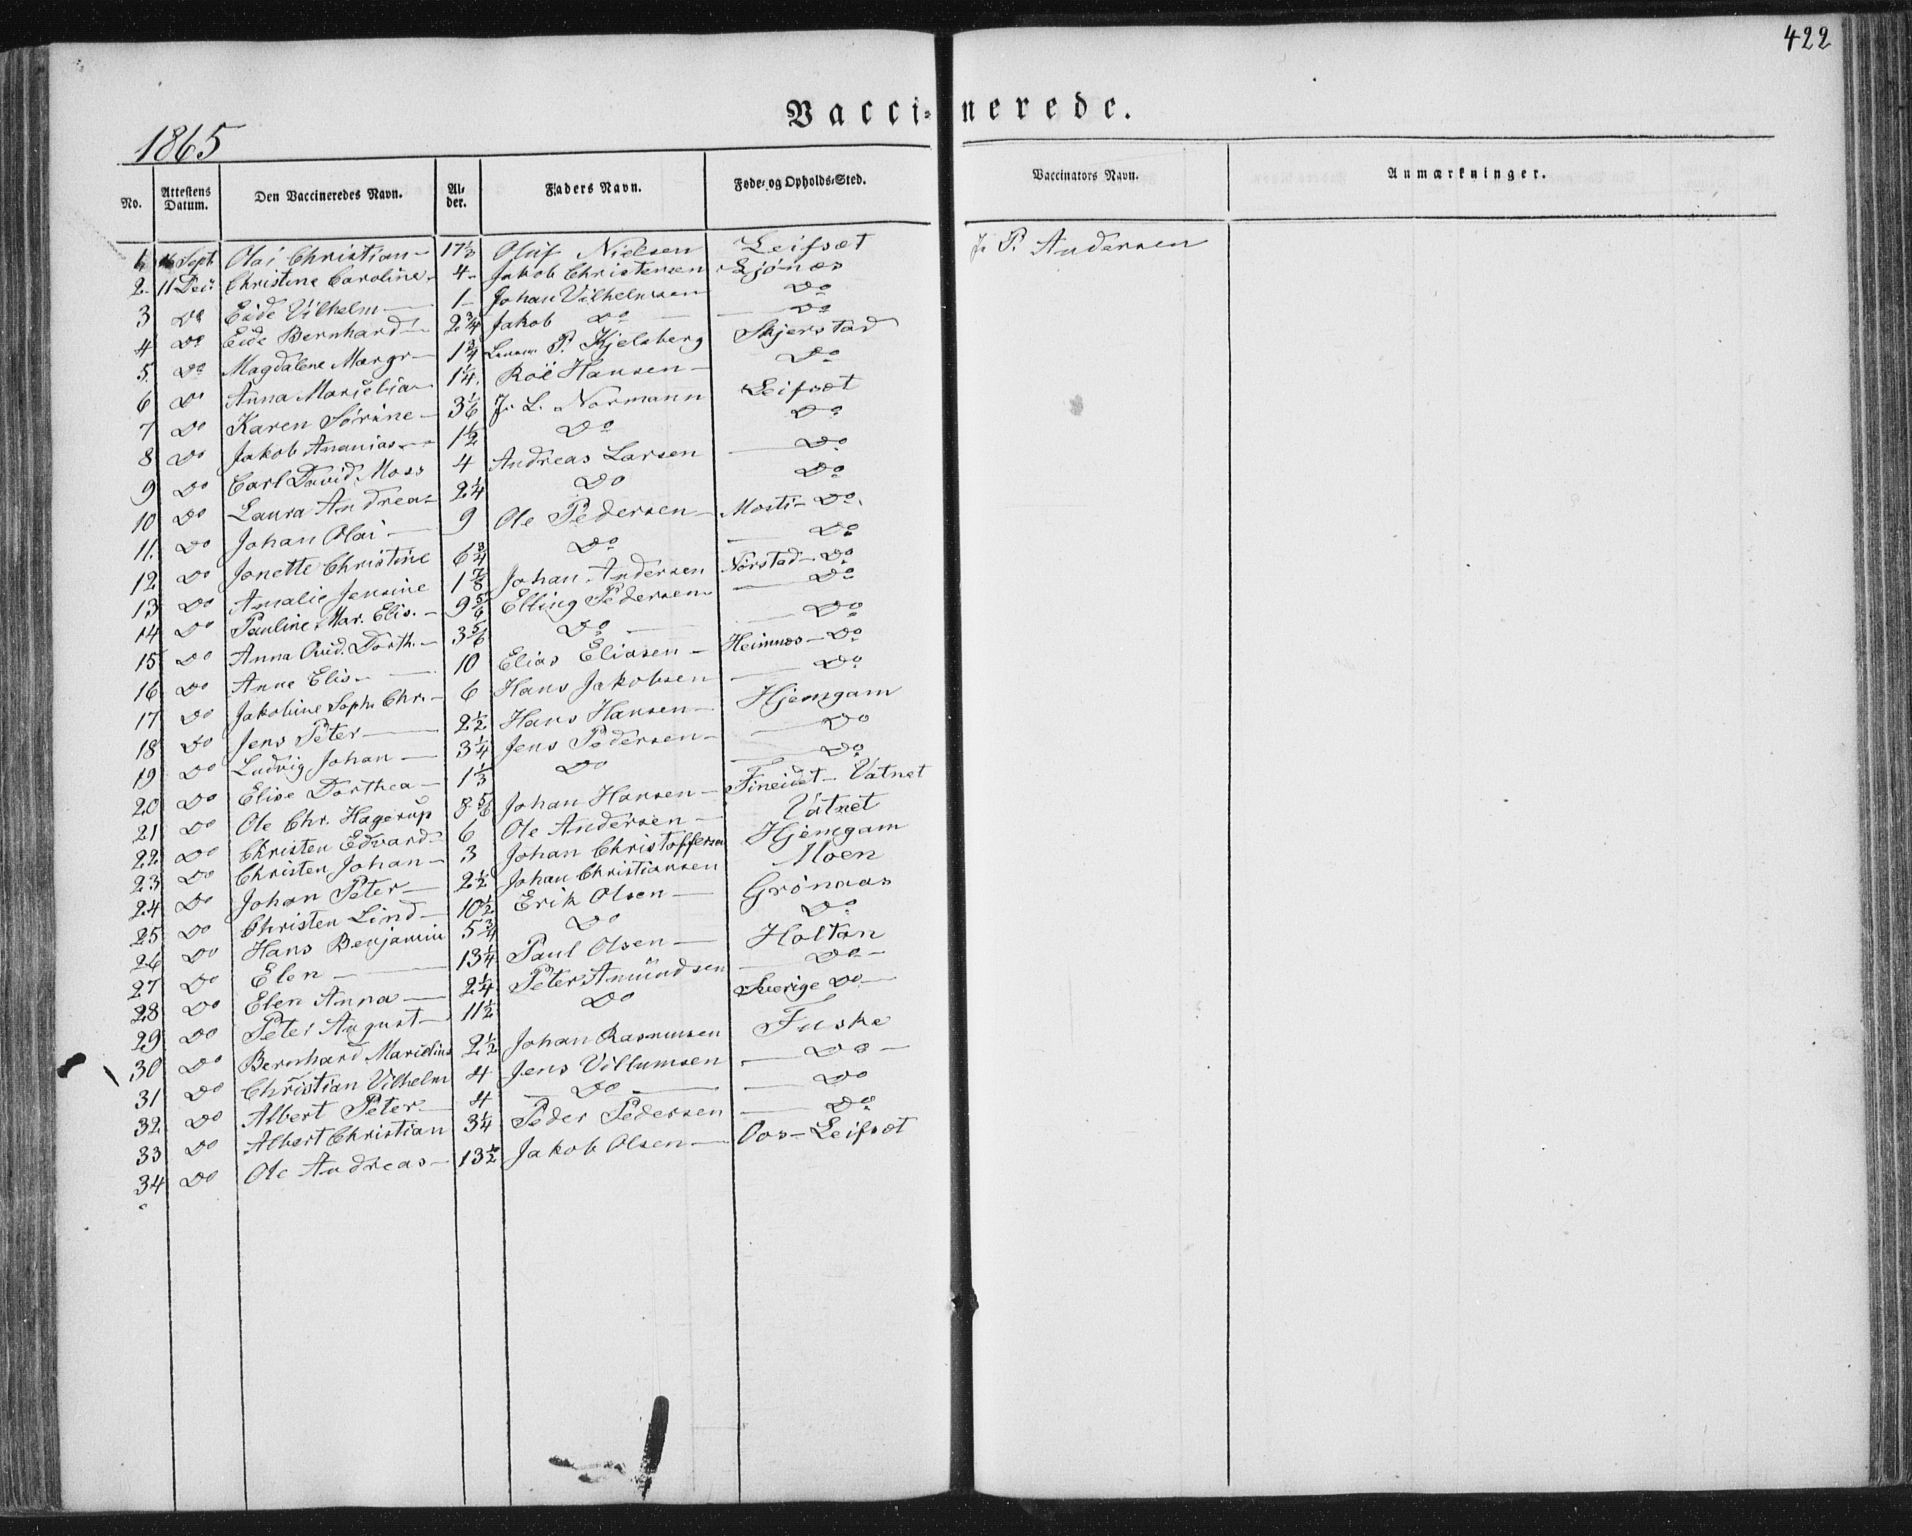 422
Vacci- nerede.
1865
No. Attestens Datum. Den Vaccineredes Navn. Alder. Faders Navn. Føde- og Opholds-Sted. Vaccinators Navn. Anmærkninger.
1 16 Sept Olai Christian 17 1/2 Oluf Nielsen Leifsæt J. P. Andersen
2 11 Dec: Christine Caroline 4 Jakob Christensen Ljönæs
3 Do Eide Vilhelm 1 Johan Vilhelmsen Do
4 Do Eide Bernhard 2 3/4 Jakob Do Do
5 Do Magdalene Margr 1 3/4 P. Kjelsberg Skjerstad
6 Do Anna Marselia 1 1/4 Roë Hansen Do
7 Do Karen Sörine 3 1/6 J. L. Normann Leifsæt
8 Do Jakob Ananias 1 1/2 Do Do
9 Do Carl David Moss 4 Andreas Larsen Do
10 Do Laura Andrea 2 1/4 Do Do
11 Do Johan Olai 9 Ole Pedersen Mosti Do
12 Do Jonette Christine 6 3/4 Do Do
13 Do Amalie Jensine 1 7/8 Johan Andersen Nörstad Do
14 Do Pauline Mar. Elis. 9 5/6 Elling Pedersen Do
15 Do Anna Ovid. Dorth. 3 5/6 Do Do
16 Do Anne Elis 10 Elias Eliasen Heimnes Do
17 Do Jakobine Soph. Chr. 6 Hans Jakobsen Do
18 Do Jens Peter 2 1/2 Hans Hansen Hjemgam
19 Do Ludvig Johan 3 1/4 Jens Pedersen Do
20 Do Elise Dorthea 1 1/3 Do Do
21 Do Ole Chr. Hagerup 8 5/6 Johan Hansen Fineidet Vatnet
22 Do Christen Edvard 6 Ole Andersen Vatnet
23 Do Christen Johan 3 Johan Christoffersen Hjemgam
24 Do Johan Peter 2 1/2 Johan Christiansen Moen
25 Do Christen Lind 10 1/2 Erik Olsen Grönnas
26 Do Hans Benjamin 5 3/4 Do Do
27 Do Elen 13 1/4 Paul Olsen Holtan
28 Do Elen Anna 2 1/4 Peter Amundsen Do
29 Do Peter August 11 1/2 Do Sverige Do
30 Do Bernhard Maridius 2 1/2 Johan Rasmussen Fuske
31 Do Christian Vilhelm 4 Jens Villumsen Do
32 Do Albert Peter 4 Do Do
33 Do Albert Christian 3 1/4 Peder Pedersen Do
34 Do Ole Andreas 13 1/2 Jakob Olsen Oos Leifsæt